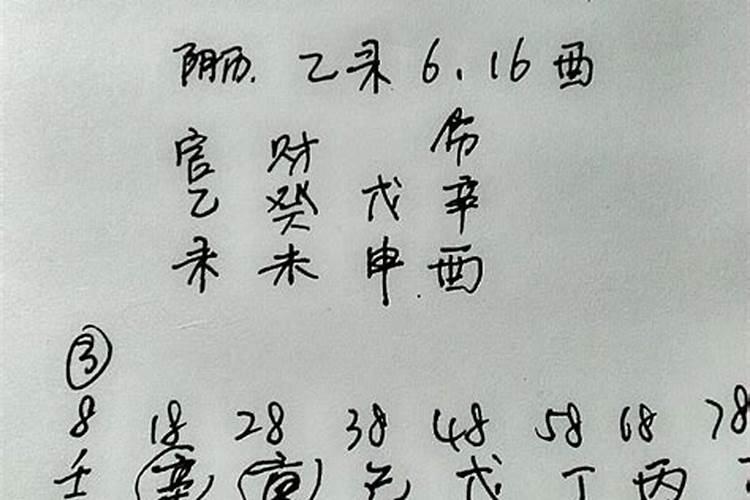 阴历. 乙亥 6.16 酉
官 财 伤
乙 癸 戊 辛
亥 未 申 酉
③
8 18 28 38 48 58 68 78
壬 辛 庚 己 戊 丁 丙